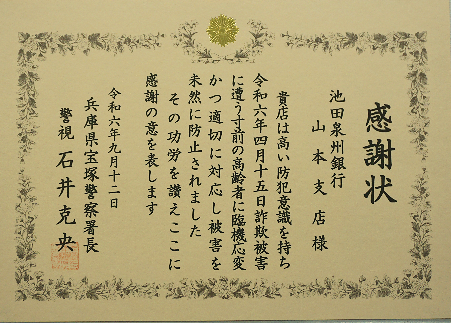 感謝状
池田泉州銀行
山本支店様
貴店は高い防犯意識を持ち
令和六年四月十五日詐欺被害
に遭う寸前の高齢者に臨機応変
かつ適切に対応し被害を
未然に防止されました
その功労を讃えここに
感謝の意を表します
令和六年九月十二日
兵庫県宝塚警察署長
警視 石井克央